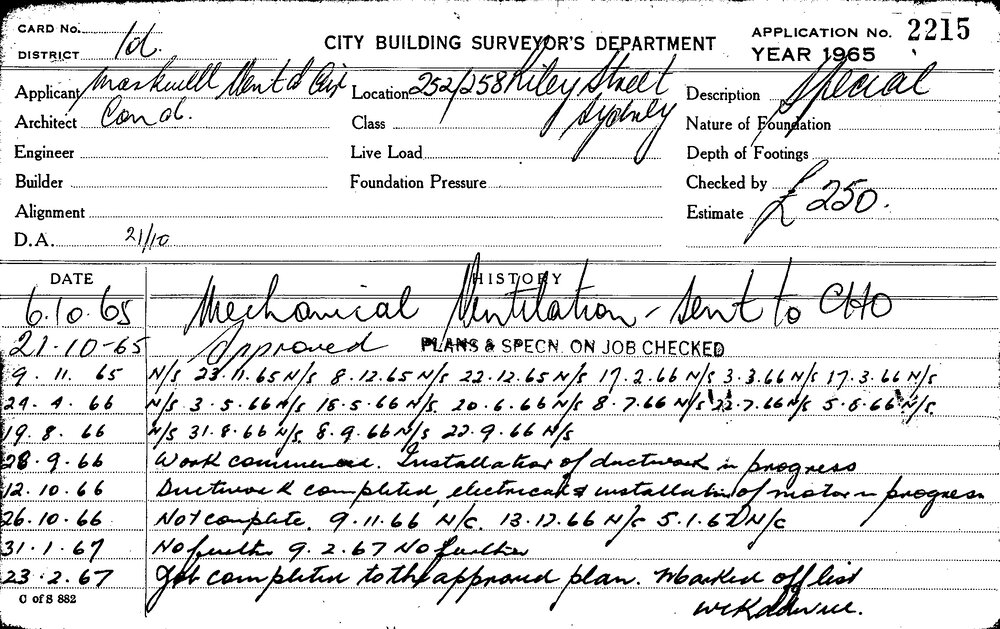 CARD No.
DISTRICT 1d.
CITY BUILDING SURVEYOR'S DEPARTMENT
APPLICATION No. 2215
YEAR 1965
Applicant Markwell Vent & Air Location 252/258 Riley Street Description Special
Architect Cond. Class Sydney Nature of Foundation
Engineer Live Load Depth of Footings
Builder Foundation Pressure Checked by
Alignment Estimate £250.
D.A. 21/10
DATE HISTORY
6.10.65 Mechanical Ventilation - Sent to CHO
21-10-65 Approved PLANS & SPECN. ON JOB CHECKED
9. 11. 65 N/S 23.11.65 N/S 8.12.65 N/S 22.12.65 N/S 17.2.66 N/S 3.3.66 N/S 17.3.66 N/S
29. 4. 66 N/S 3.5.66 N/S 18.5.66 N/S 20.6.66 N/S 8.7.66 N/S 22.7.66 N/S 5.8.66 N/S
19. 8. 66 N/S 31.8.66 N/S 8.9.66 N/S 22.9.66 N/S
28.9.66 Work commenced. Installation of ductwork in progress
12.10.66 Ductwork completed, electrical & installation of motor in progress
26.10.66 Not complete. 9.11.66 N/C. 13.12.66 N/C 5.1.67 N/C
31.1.67 No further 9.2.67 No further
23.2.67 Job completed to the approved plan. Marked off list
C of S 882